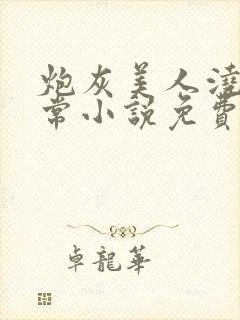 炮灰美人澆
常小説免費
卓龍華